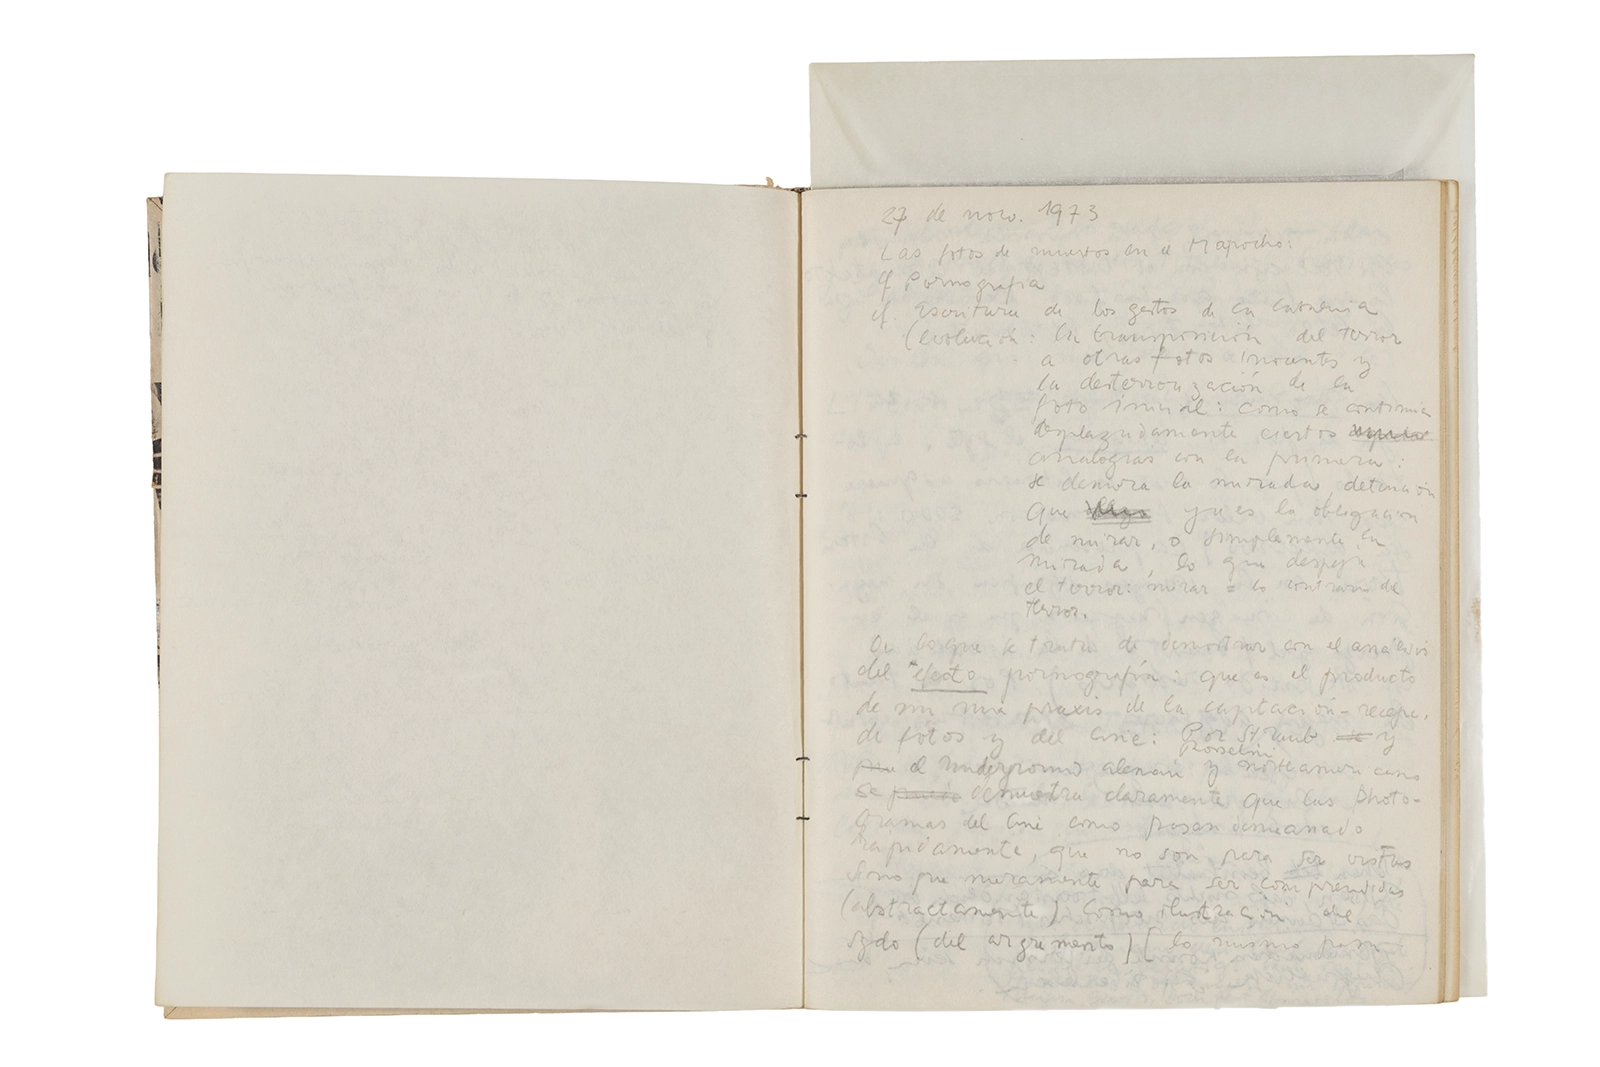 27 de nov. 1973
Las fotos de muertos en el Mapocho:
cf Pornografía
cf. Escritura de los gestos de la
(evolución: la transposición del terror
a otras fotos inocentes y
la desterrorización de la
foto inicial: como se continúa
desplazadamente ciertos
analogías con la primera:
se demora la mirada, detención
que ya es la obligación
de mirar, o simplemente la
mirada, lo que despeja
el terror: mirar = lo contrario del
terror.
De lo que se trata de demostrar con el análisis
del "efecto pornografía: que es el producto
de una praxis de la captación-recepc.
de fotos y del cine: Por Straub y
Rosselini
el Underground alemán y norteamericano
se demuestra claramente que los photo-
gramas del cine como pasan demasiado
rápidamente, que no son para ser vistos
sino que meramente para ser comprendidos
(abstractamente) como ilustración del
sgdo (del argumento) [ lo mismo pasa